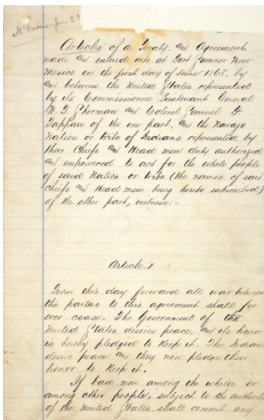 Articles of a Treaty and Agreement
made and entered into at Fort Sumner New
Mexico on the first day of June 1868. by
and between the United States represented
by its Commissioners Lieutenant General
W. T. Sherman and Colonel Samuel F
Tappan of the one part, and the Navajo
Nation or tribe of Indians represented by
their Chiefs and Head men duly authorized
and empowered to act for the whole people
of said Nation or tribe (the names of said
Chiefs and Head men being hereto subscribed)
of the other part, witness:-
Article. 1
From this day forward all war between
the parties to this agreement shall for
ever cease. The Government of the
United States desires peace, and its honor
is hereby pledged to keep it. The Indians
desire peace and they now pledge their
honor to keep it.
If bad men among the whites or
among other people, subject to the authority
of the United States shall commit any